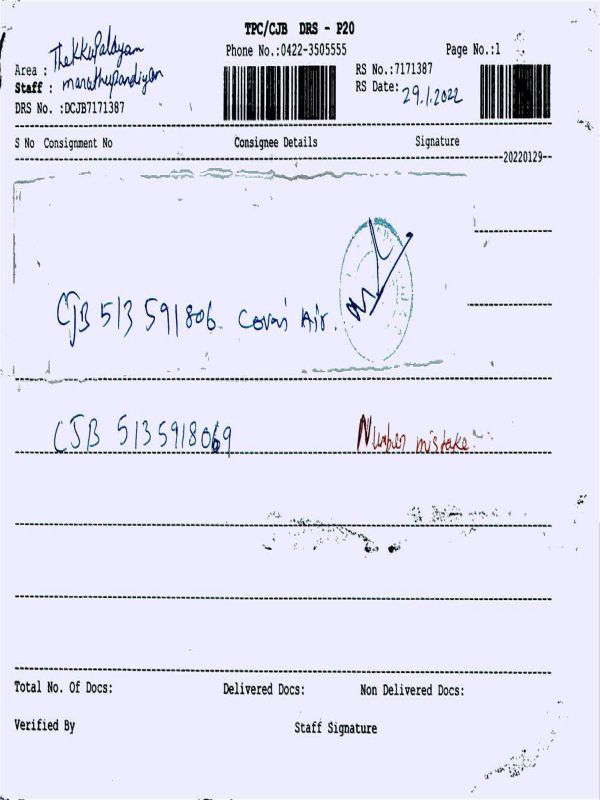 TPC/CJB DRS - P20
Phone No.:0422-3505555 Page No.:1
Area : Thekkupalayam
Staff : marathupandiyan
RS No.:7171387
RS Date: 29.1.2022
DRS No. :DCJB7171387
S No Consignment No Consignee Details Signature
20220129
CJB 513 591806 Covai Air.
CJB 5135918069 Number mistake
Total No. Of Docs: Delivered Docs: Non Delivered Docs:
Verified By Staff Signature